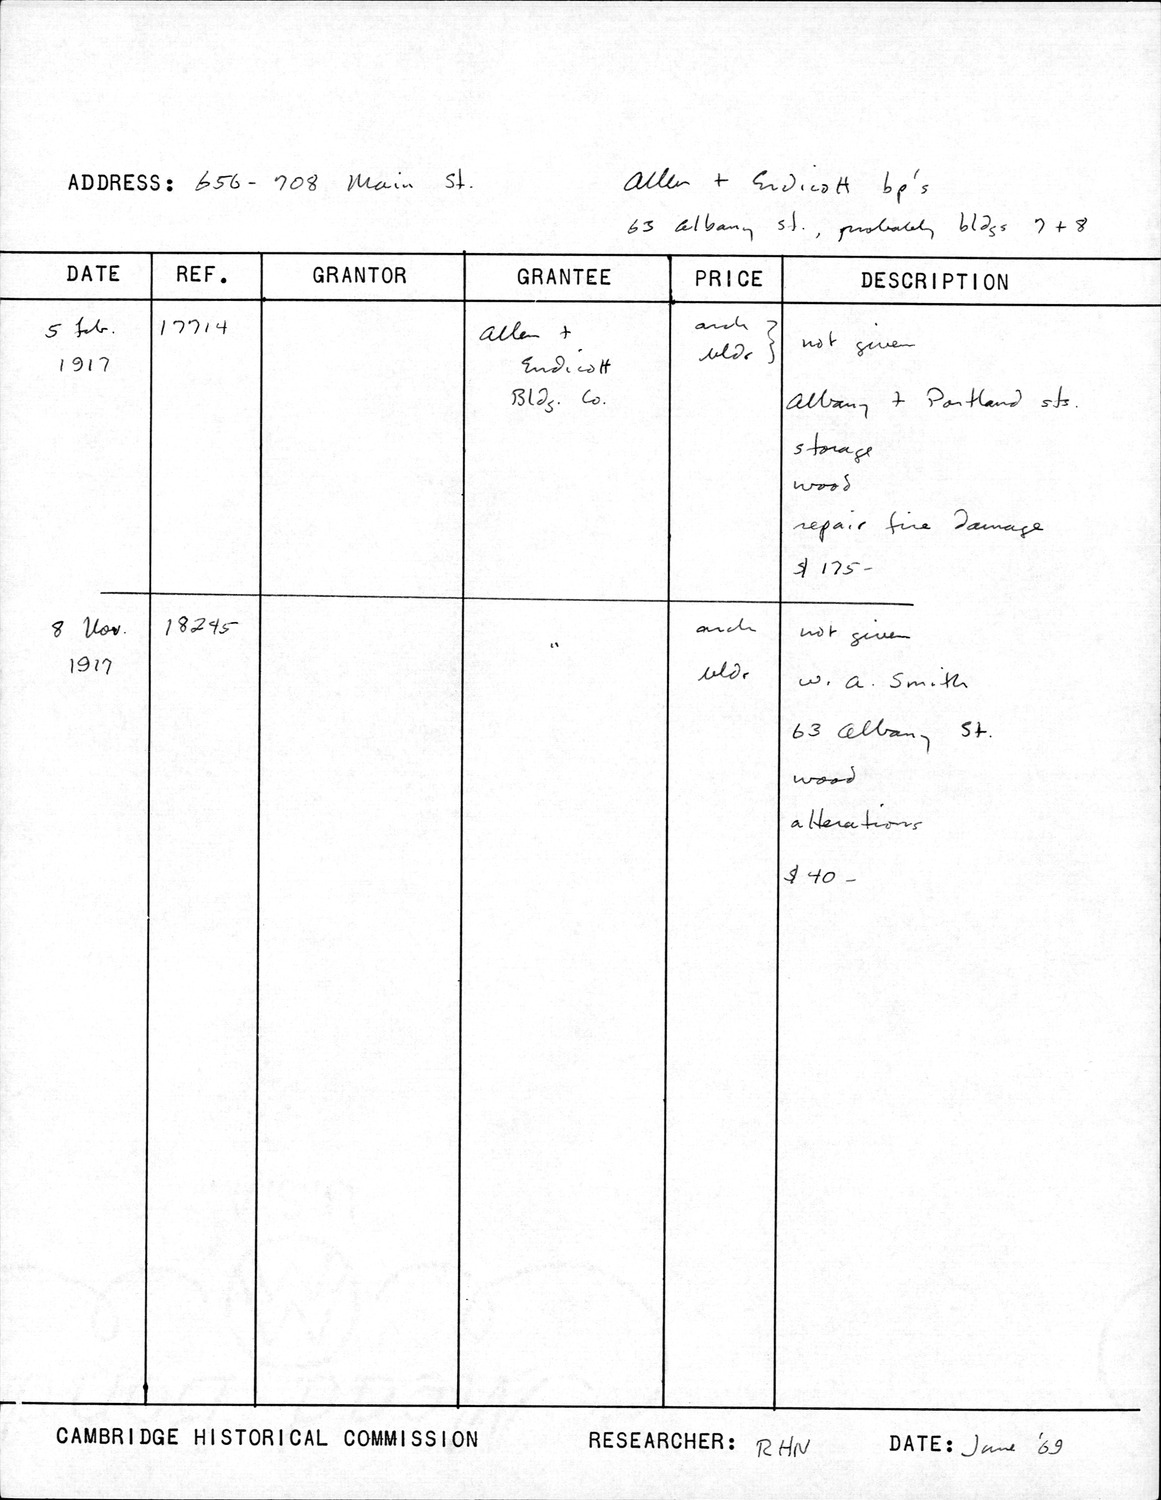 ADDRESS: 656-708 Main St.
Allen + Endicott bp's
63 Albany st., probably bldgs 7 + 8
DATE REF. GRANTOR GRANTEE PRICE DESCRIPTION
5 Feb. 17714 Allen + arch } not given
1917 Endicott bldr }
Bldg. Co.
Albany + Portland sts.
storage
wood
repair fire damage
$ 175-
8 Nov. 18245 " arch not given
1917 bldr W. A. Smith
63 Albany St.
wood
alterations
$ 40-
CAMBRIDGE HISTORICAL COMMISSION RESEARCHER: RHN DATE: June '69